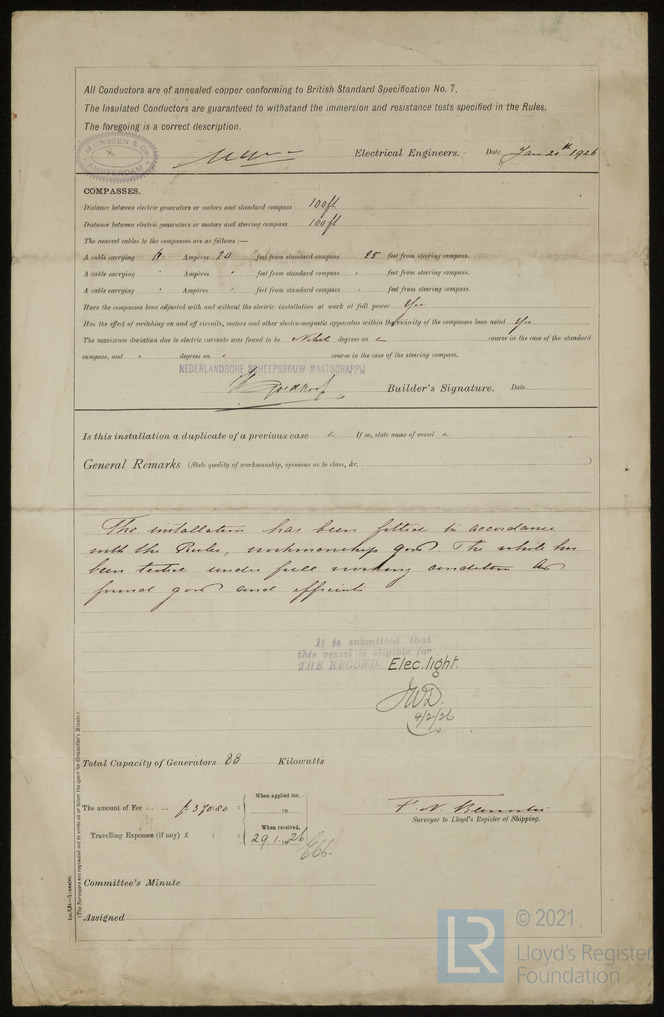 All Conductors are of annealed copper conforming to British Standard Specification No. 7.
The Insulated Conductors are guaranteed to withstand the immersion and resistance tests specified in the Rules.
The foregoing is a correct description.
MIJNSSEN & Co
AMSTERDAM
Electrical Engineers. Date Jan 20th 1926
COMPASSES.
Distance between electric generators or motors and standard compass 100ft
Distance between electric generators or motors and steering compass 100ft
The nearest cables to the compasses are as follows:—
A cable carrying Ampères 20 feet from standard compass 25 feet from steering compass.
A cable carrying " Ampères " feet from standard compass " feet from steering compass.
A cable carrying " Ampères " feet from standard compass " feet from steering compass.
Have the compasses been adjusted with and without the electric installation at work at full power Yes
Has the effect of switching on and off circuits, motors and other electro-magnetic apparatus within the vicinity of the compasses been noted Yes
The maximum deviation due to electric currents was found to be degrees on course in the case of the standard
compass, and degrees on course in the case of the steering compass.
NEDERLANDSCHE SCHEEPSBOUW-MAATSCHAPPIJ
Builder's Signature. Date
Is this installation a duplicate of a previous case If so, state name of vessel
General Remarks (State quality of workmanship, opinions as to class, &c. )
The installation has been fitted in accordance
with the Rules, workmanship good. The whole has
been tested under full working conditions and
found good and efficient
It is submitted that
this vessel is eligible for
THE RECORD. Elec. light.
JWD.
4/2/26
Total Capacity of Generators 88 Kilowatts
The amount of Fee ... ... f. 370.80 : When applied for,
19
Travelling Expenses (if any) £ : : When received,
29.1.1926
Surveyor to Lloyd's Register of Shipping.
Committee's Minute
Assigned
(The Surveyors are requested not to write on or below the space for Committee's Minute.)
LR
© 2021
Lloyd's Register
Foundation